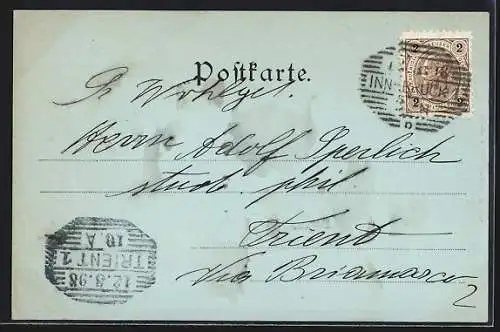 Postkarte.
Sr Wohlget.
Herrn Adolf Sperlich
stud. phil.
Trient
Via Briamarco
2
2 2
2 2
INNSBRUCK
2
12.8.98
TRIENT 1
10.A